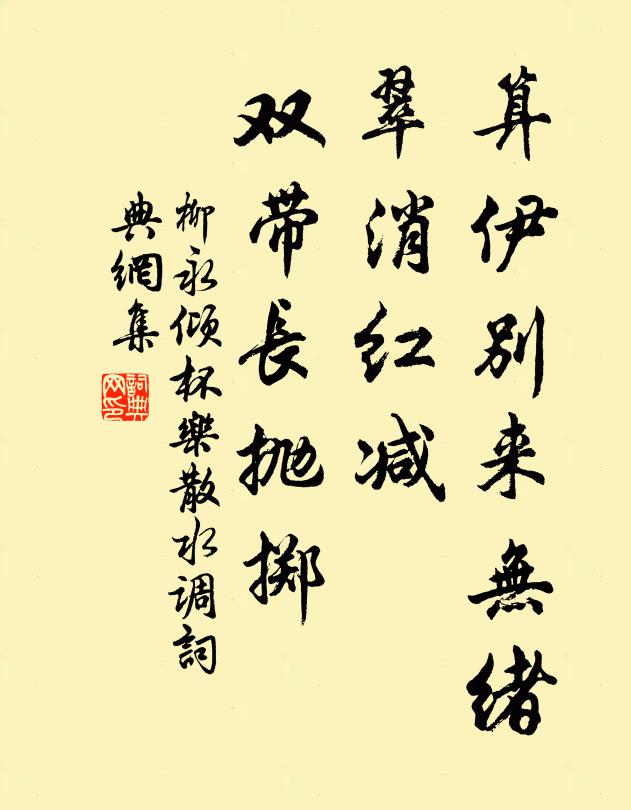 算伊别来無緒
翠消红减
双带長抛掷
柳永倾杯樂散水调詞
典網集
詞典
网印